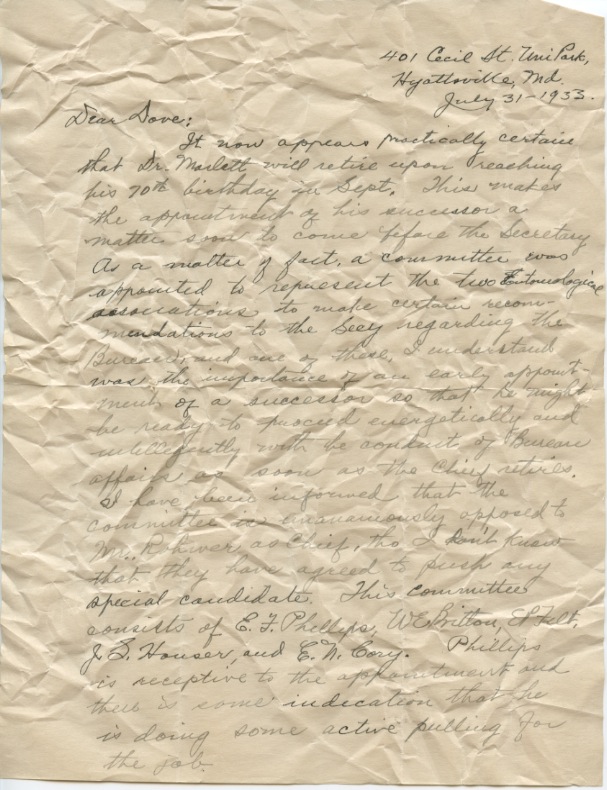 401 Cecil St. Uni Park,
Hyattsville, Md.
July 31-1933.
Dear Dove:
It now appears practically certain
that Dr. Marlatt will retire upon reaching
his 70th birthday in Sept. This makes
the appointment of his successor a
matter soon to come before the Secretary
As a matter of fact, a committee was
appointed to represent the two Entomological
associations to make certain recom-
mendations to the Secy regarding the
Bureau, and one of these, I understand
was the importance of an early appoint-
ment of a successor so that he might
be ready to proceed energetically and
intelligently with he conduct of Bureau
affairs as soon as the Chief retires.
I have been informed that the
committee is unanamously opposed to
Mr. Rohwer as Chief, tho I don't know
that they have agreed to push any
special candidate. This committee
consists of E. F. Phillips, W E Britton, E P Felt,
J. S. Houser, and E. N. Cory. Phillips
is receptive to the appointment and
there is some indication that he
is doing some active pulling for
the job.